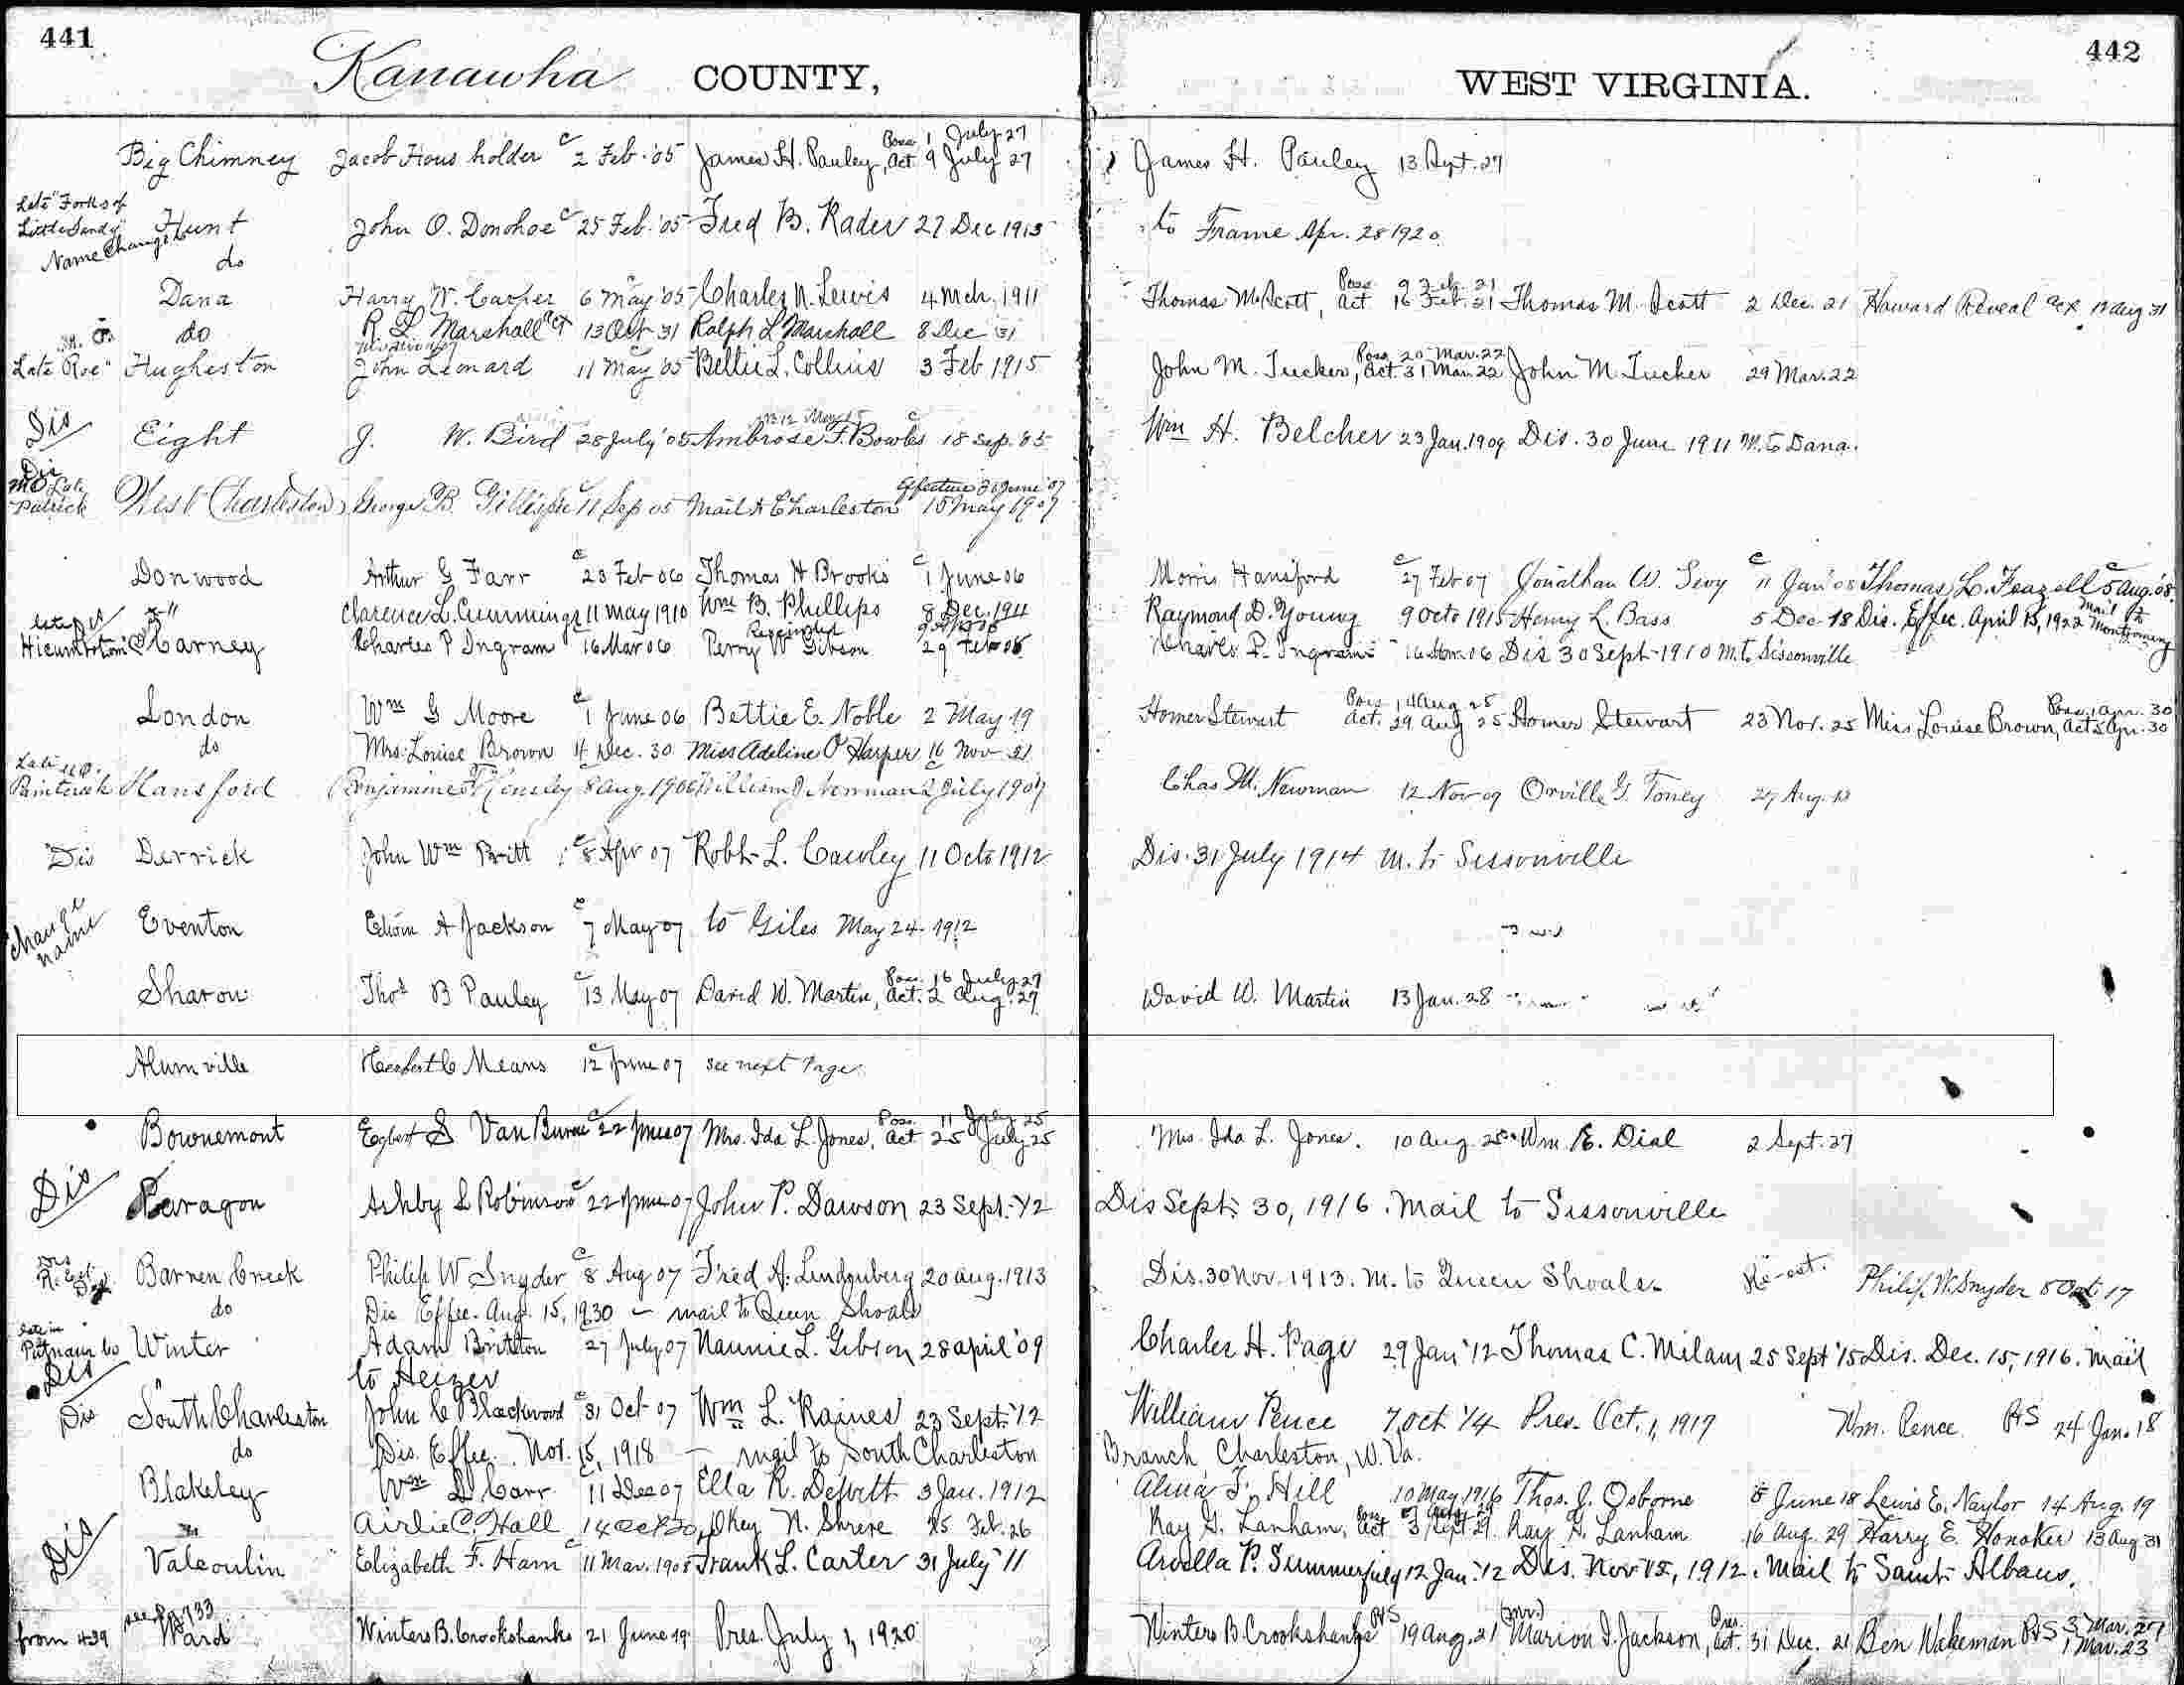 441
Kanawha COUNTY,
WEST VIRGINIA.
442
Big Chimney Jacob Householder c 2 Feb. '05 James H. Pauley, Poss. 1 July 27 Act 9 July 27 James H. Pauley 13 Sept. 27
Late "Forks of Little Sandy" Name Change Hunt John O. Donohoe c 25 Feb. '05 Fred B. Rader 27 Dec 1913 to Frame Apr. 28 1920
do
Dana Harry W. Carper 6 May '05 Charles N. Lewis 4 Mch. 1911 Thomas M. Scott, Poss. 9 Feb. 21 Act. 16 Feb. 21 Thomas M. Scott 2 Dec. 21 Howard Reveal act. 17 Aug 31
do R. L. Marshall act 13 Oct 31 Ralph L Marshall 8 Dec 31
Late "Roe" Hugheston John Leonard 11 May '05 Bellie L. Collins 3 Feb 1915 John M. Tucker, Poss. 20 Mar. 22 Act. 31 Mar. 22 John M. Tucker 29 Mar. 22
Dis Eight J. W. Bird 28 July '05 Ambrose F. Bowles c 18 Sep. '05 Wm H. Belcher 23 Jan. 1909 Dis. 30 June 1911 M. to Dana.
Dis MO Late Patrick West Charleston George B. Gillispie 11 Sep 05 Mail to Charleston Effective 30 June '07 15 May 1907
Donwood Arthur G Farr c 23 Feb 06 Thomas H Brooks c 1 June 06 Morris Hansford c 27 Feb 07 Jonathan W. Levy c 11 Jan '08 Thomas L. Feazell c 5 Aug. '08.
" Clarence L. Cummings 11 May 1910 Wm B. Phillips 8 Dec. 1911 Raymond D. Young 9 Octo 1915 Henry L. Bass 5 Dec. 18 Dis. Effec. April 15, 1922 Mail to Montgomery
Carney Charles P Ingram 16 Mar 06 Perry W Gibson Rescinded 29 Feb 08 Charles P. Ingram 16 Mar. 06 Dis 30 Sept 1910 M. to Sissonville
London Wm G Moore c 1 June 06 Bettie E. Noble 2 May 19 Homer Stewart Poss. 1 Aug 25 Act. 29 Aug 25 Homer Stewart 23 Nov. 25 Miss Louise Brown, Poss. 1 Apr. 30 Act 5 Apr. 30
do Mrs. Louise Brown 4 Dec. 30 Miss Adeline O Harper 16 Nov 31
Late Paintcreek Hansford Benjamine F Kensley 8 Aug. 1906 William J Newman 2 July 1907 Chas M. Newman 12 Nov 09 Orville G. Toney 27 Aug. 13
Dis Derrick John Wm Britt c 8 Apr 07 Robt. L. Cawley 11 Octo 1912 Dis. 31 July 1914 M. to Sissonville
Change name Eventon Edwin A Jackson c 7 May 07 to Giles May 24 1912
Sharon Thos B Pauley c 13 May 07 David W. Martin, Poss. 16 July 27 Act. 2 Aug. 27 David W. Martin 13 Jan. 28
Alumville Herbert C Means c 12 June 07 see next Page
Bownemont Egbert S Van Buren c 22 June 07 Mrs. Ida L. Jones, Poss. 11 July 25 Act 25 July 25 Mrs. Ida L. Jones. 10 Aug. 25 Wm. E. Dial 2 Sept. 27
Dis Paragon Ashby S Robinson c 22 June 07 John P. Dawson 23 Sept. '12 Dis Sept. 30, 1916. Mail to Sissonville
Barren Creek Philip W Snyder c 8 Aug 07 Fred A. Lindenberg 20 Aug. 1913 Dis. 30 Nov. 1913. M. to Queen Shoals. Re-est. Philip W. Snyder 5 Oct. 17
do Dis Effec. Aug. 15, 1930 - mail to Queen Shoals
late in Putnam Co Winter Adam Britton 27 July 07 Nannie L. Gibson 28 April '09 Charles H. Page 29 Jan '12 Thomas C. Milam 25 Sept '15 Dis. Dec. 15, 1916. Mail
Dis to Heizer
Dis South Charleston John C Blackwood c 31 Oct 07 Wm L. Raines 23 Sept. '12 William Pence 7 Oct '14 Pres. Oct. 1, 1917 Wm. Pence P&S 24 Jan. 18
do Dis. Effec. Nov. 15, 1918 - mail to South Charleston Branch Charleston, W. Va.
Blakeley Wm S Carr 11 Dec 07 Ella R. DeWitt 3 Jan. 1912 Alma F. Hill 10 May 1916 Thos. J. Osborne 8 June 18 Lewis E. Naylor 14 Aug. 19
Airlie C. Hall 14 Oct 20 Okey N. Shreve 25 Feb. 26 Ray G. Lanham, Act 3 Sept 29 Ray G. Lanham 16 Aug. 29 Harry E. Honaker 13 Aug 31
Dis Valcoulin Elizabeth F. Ham c 11 Mar. 1908 Frank L. Carter 31 July '11 Arvella P. Summerfield 12 Jan. '12 Dis. Nov 15, 1912. Mail to Saint Albans.
from 439 see Pg 733 Ward Winters B. Crookshanks 21 June 19 Pres. July 1, 1920 Winters B. Crookshanks P&S 19 Aug. 21 (Mr.) Marion I. Jackson, Act. 31 Dec. 21 Ben Wakeman P&S 1 Mar. 23